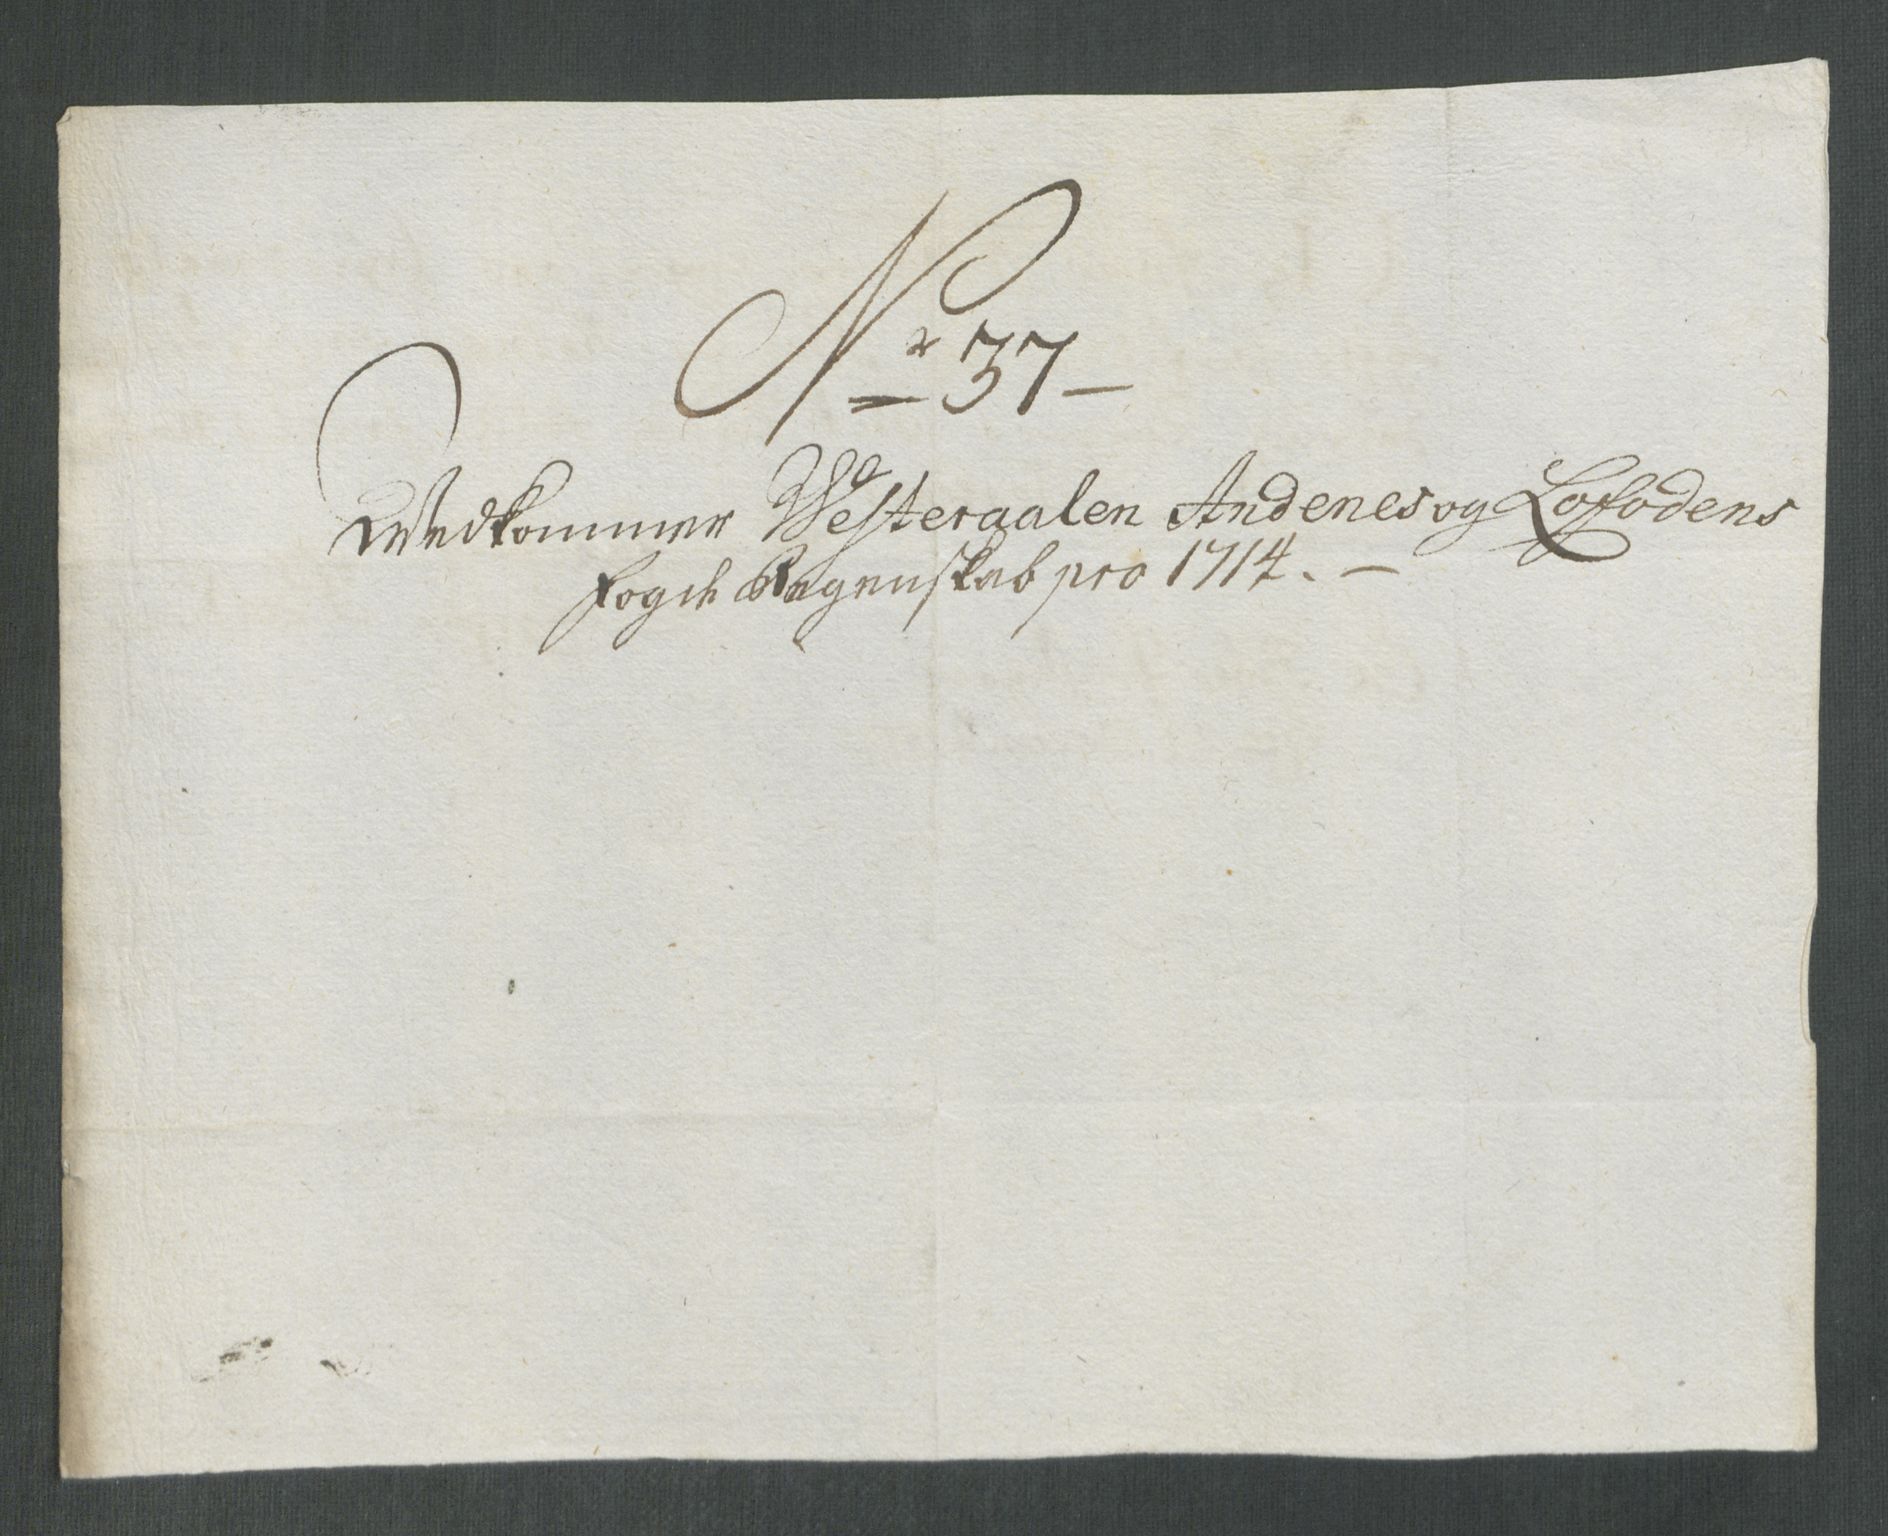 Nr 37 -
Vedkommer Westeraalen Andenes og Lofodens
fogd Regenskab pro 1714. -